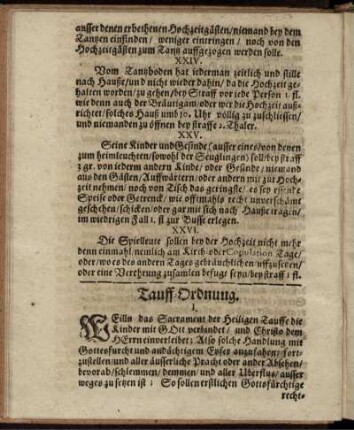 ausser denen erbethenen Hochzeitgästen/ niemand bey dem
Tantzen einfinden/ weniger eintringen/ noch von den
Hochzeitgästen zum Tantz auffgezogen werden solle.
XXIV.
Vom Tantzboden hat iederman zeitlich und stille
nach Hauße/und nicht wieder dahin/ da die Hochzeit ge-
halten worden/ zu gehen/bey Straff vor iede Person 1. fl.
wie denn auch der Bräutigam/oder wer die Hochzeit auß-
richtet/solches Hauß umb 10. Uhr völlig zu zuschliessen/
und niemanden zu öffnen bey straffe 2. Thaler.
XXV.
Seine Kinder und Gesinde (ausser eines/von denen
zum heimleuchten/sowohl der Seuglingen) soll/bey straff
3 gr. von iedern andern Kinde/ oder Gesinde/ niemand
aus den Gästen/Auffwärtern/oder andern mit zur Hoch-
zeit nehmen/ noch von Tisch das geringste/ es sey
Speise oder Getrenck/ wie offtmahls recht unverschämt
geschehen/schicken/oder gar mit sich nach Hauße tragen/
im wiedrigen Fall 1. fl zur Busse erlegen.
XXVI.
Die Spielleute sollen bey der Hochzeit nicht mehr
denn einmahl/nemlich am Kirch- oder Copulation Tage/
oder/wo es des andern Tages gebräuchlichen/uffzuheben/
oder eine Verehrung zusamlen befugt seyn/bey straff 1 fl.
Tauff-Ordnung.
I.
WEiln das Sacrament der Heiligen Tauffe die
Kinder mit GOtt verbindet/ und Christo dem
HErrn einverleibet; Also solche Handlung mit
Gottesfurcht und andächtigem Eyfer anzufahen/ fort-
zustellen/und aller äusserliche Pracht oder ander Absehen/
bevorab/schlemmen/ demmen/ und aller Uberfluß/ ausser
weges zu setzen ist: So sollen erstlichen Gottsfürchtige
recht-